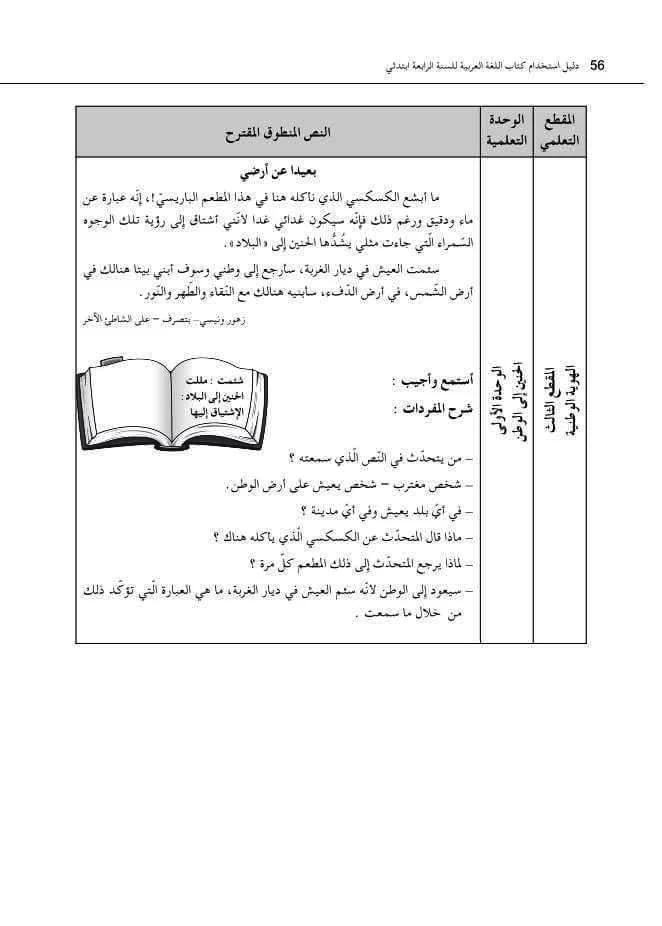 56 دليل استخدام كتاب اللغة العربية للسنة الرابعة ابتدئي
المقطع التعلمي
الوحدة التعلمية
النص المنطوق المقترح
المقطع الثالث
الهوية الوطنية
الوحدة الأولى
الحنين إلى الوطن
بعيدا عن أرضي
ما أبشع الكسكسي الذي نأكله هنا في هذا المطعم الباريسيّ!، إنّه عبارة عن
ماء ودقيق ورغم ذلك فإنّه سيكون غدائي غدا لأنّني أشتاق إلى رؤية تلك الوجوه
السّمراء الّتي جاءت مثلي يشُدُّها الحنين إلى «البلاد».
سئمت العيش في ديار الغربة، سأرجع إلى وطني وسوف أبني بيتا هنالك في
أرض الشّمس، في أرض الدّفء، سأبنيه هنالك مع النّقاء والطّهر والنّور.
زهور ونيسي– بتصرف – على الشاطئ الآخر
أستمع وأجيب :
شرح المفردات :
شئمت : مللت
الحنين إلى البلاد:
الإشتياق إليها
– من يتحدّث في النّص الّذي سمعته ؟
– شخص مغترب – شخص يعيش على أرض الوطن.
– في أيّ بلد يعيش وفي أيّ مدينة ؟
– ماذا قال المتحدّث عن الكسكسي الّذي يأكله هناك ؟
– لماذا يرجع المتحدّث إلى ذلك المطعم كلّ مرة ؟
– سيعود إلى الوطن لأنّه سئم العيش في ديار الغربة، ما هي العبارة الّتي تؤكّد ذلك
من خلال ما سمعت .